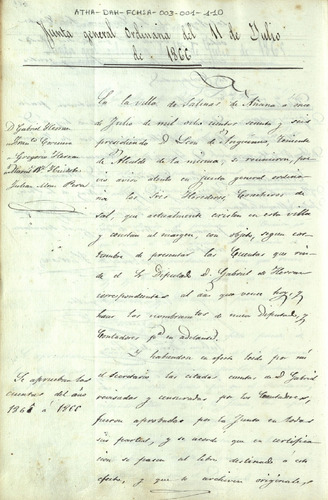 ATHA-DAH-FCHSA-003-001-1-10
Junta general ordinaria del 11 de Julio
de 1866
D. Gabriel Herran
Gregorio Herran
Julian
En la villa de Salinas de Añana a once
de Julio de mil ocho cientos sesenta y seis
presidiendo D. Leon de Teniente
de Alcalde de la misma, se reunieron, pre
vio aviso ante en junta general ordinaria
los Sres Herederos de
sal, que actualmente existen en esta villa
y constan al margen, con objeto, segun cos
tumbre de presentar las Cuentas que rin
de el Sr Diputado D. Gabriel de Herran
correspondientes al año que vence hoy, y
hacer los nombramientos de nuevo Diputado, y
Contadores pa en adelante.
Y habiendo en efecto leido por mi
el Secretario las citadas cuentas de D. Gabriel
revisadas y censuradas por los Contadores,
fueron aprobadas por la Junta en todas
sus partes, y se acordo que en certifica
cion se pasen al libro destinado a este
efecto, y que se archiven originales,
Se aprueban las
cuentas del año
1865 á 1866